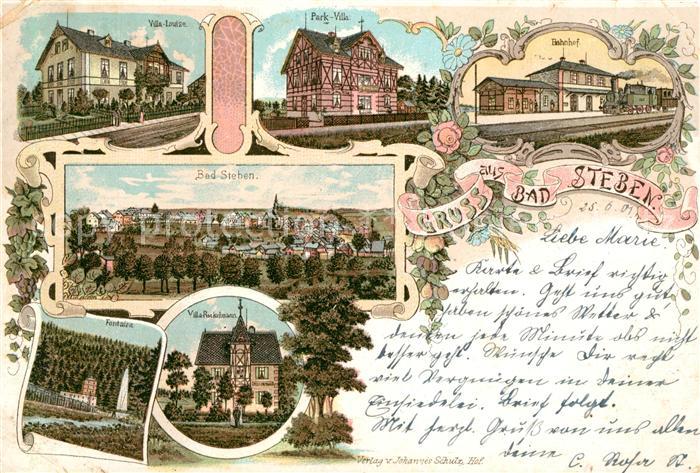 Villa-Louise.
Park-Villa.
Bahnhof.
Bad Steben.
GRUSS aus BAD STEBEN.
25.6.01
Liebe Marie
Karte & Brief richtig
erhalten. Geht uns gut
haben schönes Wetter &
denken jede Minute obs nicht
besser geht. Wünsche Dir recht
viel Vergnügen in Deiner
Einsiedelei. Brief folgt.
Mit herzl. Gruß von uns allen
deine C. Rosa
Fontaine
Villa
Verlag v. Johannes Schulz, Hof.